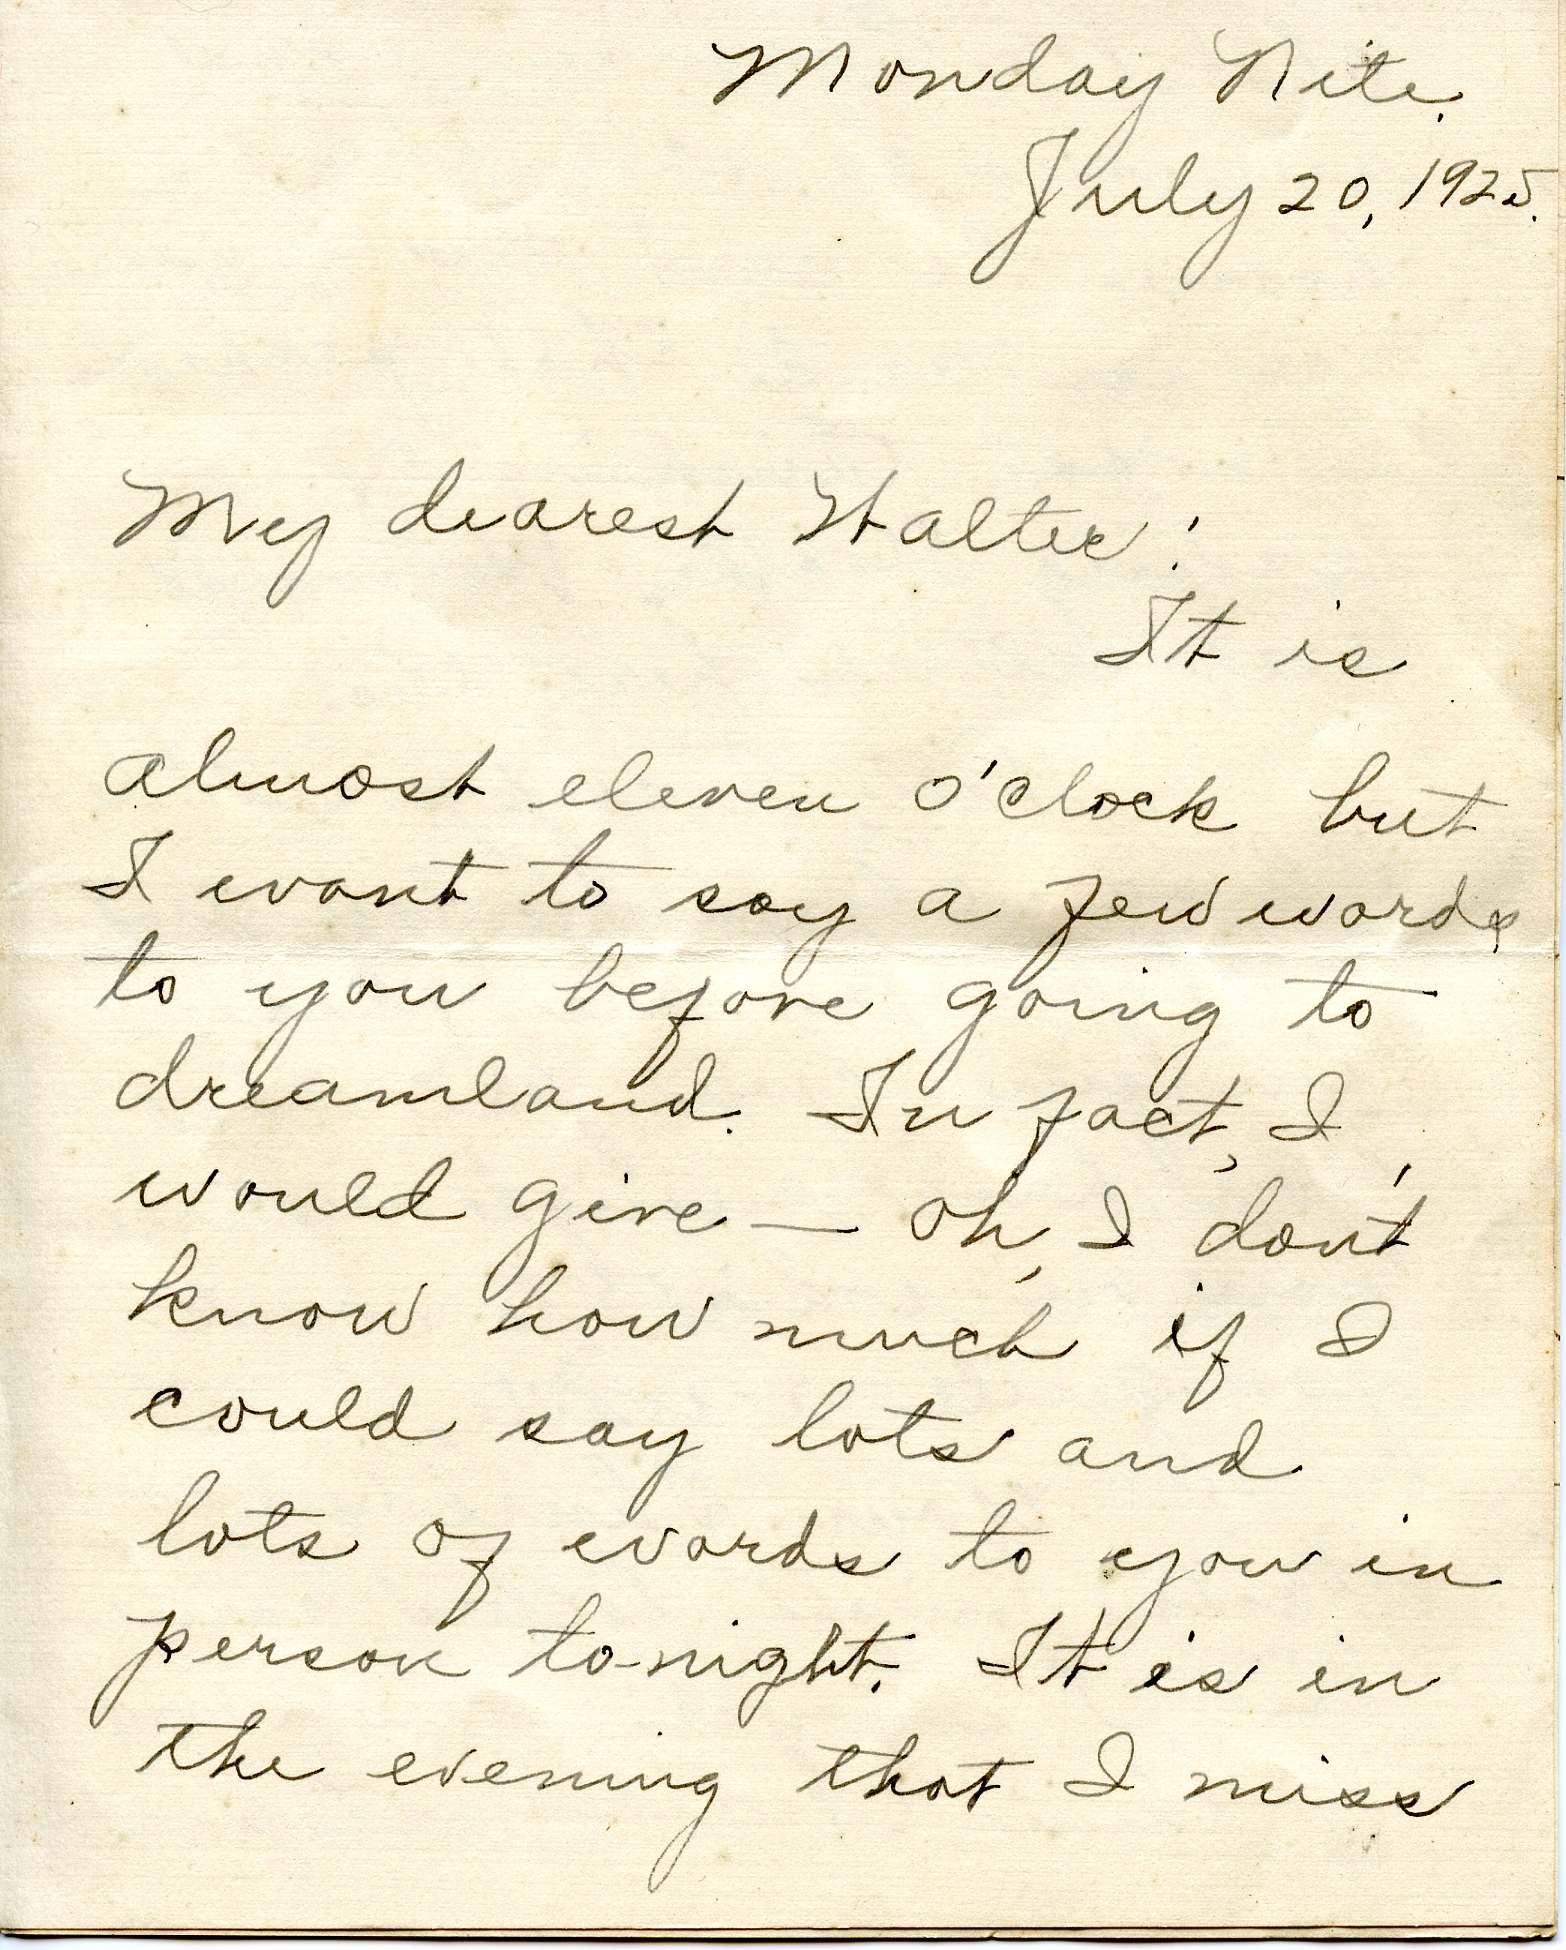 Monday Nite.
July 20, 1925.
My dearest Walter:
It is
almost eleven o'clock but
I want to say a few words
to you before going to
dreamland. In fact, I
would give — oh, I don't
know how much if I
could say lots and
lots of words to you in
person to-night. It is in
the evening that I miss